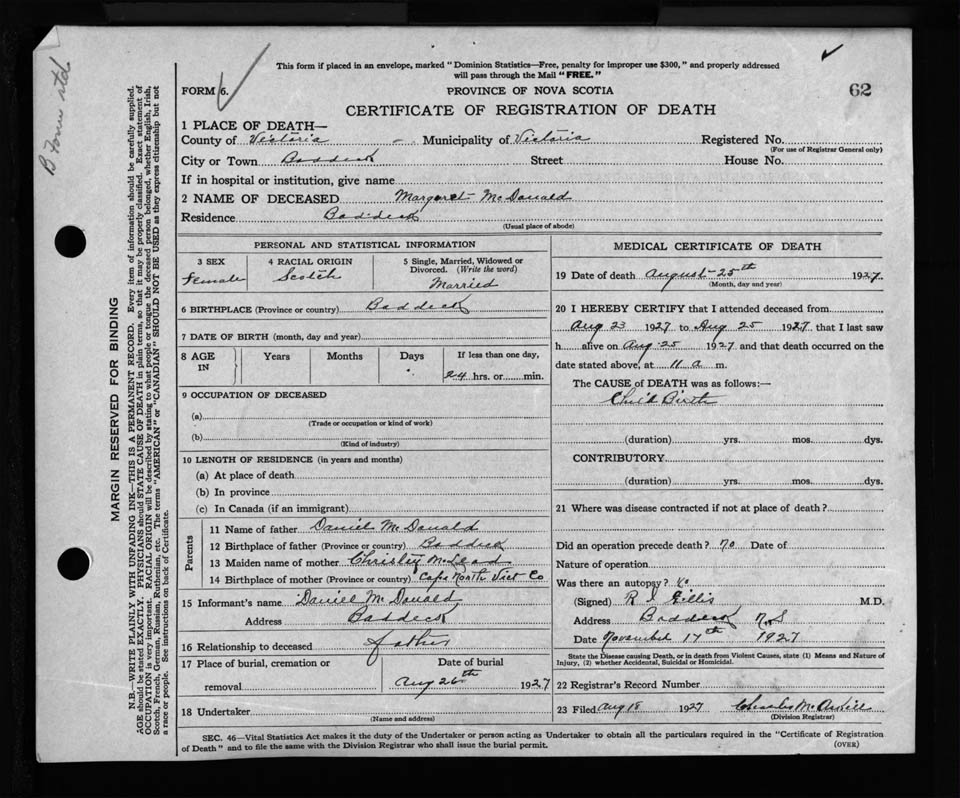 This form if placed in an envelope, marked "Dominion Statistics—Free, penalty for improper use $300," and properly addressed
will pass through the Mail "FREE."
FORM 6.
PROVINCE OF NOVA SCOTIA
62
CERTIFICATE OF REGISTRATION OF DEATH
1 PLACE OF DEATH—
County of Victoria Municipality of Victoria Registered No.
(For use of Registrar General only)
City or Town Baddeck Street House No.
If in hospital or institution, give name
2 NAME OF DECEASED Margaret McDonald
Residence Baddeck
(Usual place of abode)
PERSONAL AND STATISTICAL INFORMATION
3 SEX
Female
4 RACIAL ORIGIN
Scotch
5 Single, Married, Widowed or
Divorced. (Write the word)
Married
6 BIRTHPLACE (Province or country) Baddeck
7 DATE OF BIRTH (month, day and year)
8 AGE IN Years Months Days If less than one day,
24 hrs. or min.
9 OCCUPATION OF DECEASED
(a)
(Trade or occupation or kind of work)
(b)
(Kind of industry)
10 LENGTH OF RESIDENCE (in years and months)
(a) At place of death
(b) In province
(c) In Canada (if an immigrant)
Parents
11 Name of father Daniel McDonald
12 Birthplace of father (Province or country) Baddeck
13 Maiden name of mother Chrisley McLead
14 Birthplace of mother (Province or country) Cape North Vict Co
15 Informant's name Daniel McDonald
Address Baddeck
16 Relationship to deceased father
17 Place of burial, cremation or
removal
Date of burial
Aug 26th 1927
18 Undertaker
(Name and address)
MEDICAL CERTIFICATE OF DEATH
19 Date of death August 25th 1927
(Month, day and year)
20 I HEREBY CERTIFY that I attended deceased from
Aug 23 1927 to Aug 25 1927 that I last saw
h alive on Aug 25 1927 and that death occurred on the
date stated above, at 11 a m.
The CAUSE of DEATH was as follows:—
Child Birth
(duration) yrs. mos. dys.
CONTRIBUTORY
(duration) yrs. mos. dys.
21 Where was disease contracted if not at place of death?
Did an operation precede death? no Date of
Nature of operation
Was there an autopsy? No
(Signed) R I Gillis M.D.
Address Baddeck N.S
Date November 17th 1927
State the Disease causing Death, or in death from Violent Causes, state (1) Means and Nature of
Injury, (2) whether Accidental, Suicidal or Homicidal.
22 Registrar's Record Number
23 Filed Aug 18 1927 Charles
(Division Registrar)
SEC. 46—Vital Statistics Act makes it the duty of the Undertaker or person acting as Undertaker to obtain all the particulars required in the "Certificate of Registration
of Death" and to file the same with the Division Registrar who shall issue the burial permit.
(OVER)
MARGIN RESERVED FOR BINDING
N.B.—WRITE PLAINLY WITH UNFADING INK—THIS IS A PERMANENT RECORD. Every item of information should be carefully supplied.
AGE should be stated EXACTLY. PHYSICIANS should STATE CAUSE OF DEATH in plain terms, so that it may be properly classified. Exact statement of
OCCUPATION is very important. RACIAL ORIGIN will be described by stating to what people or tongue the deceased person belonged, whether English, Irish,
Scotch, French, German, Russian, Ruthenian, etc. The terms "AMERICAN" or "CANADIAN" SHOULD NOT BE USED as they express citizenship but not
a race or people. See instructions on back of Certificate.